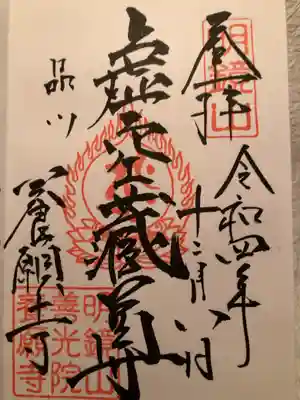 登拝
明鏡山
令和四年
十二月八日
虚空蔵尊
品川
養願寺
明鏡山
善光院
養願寺